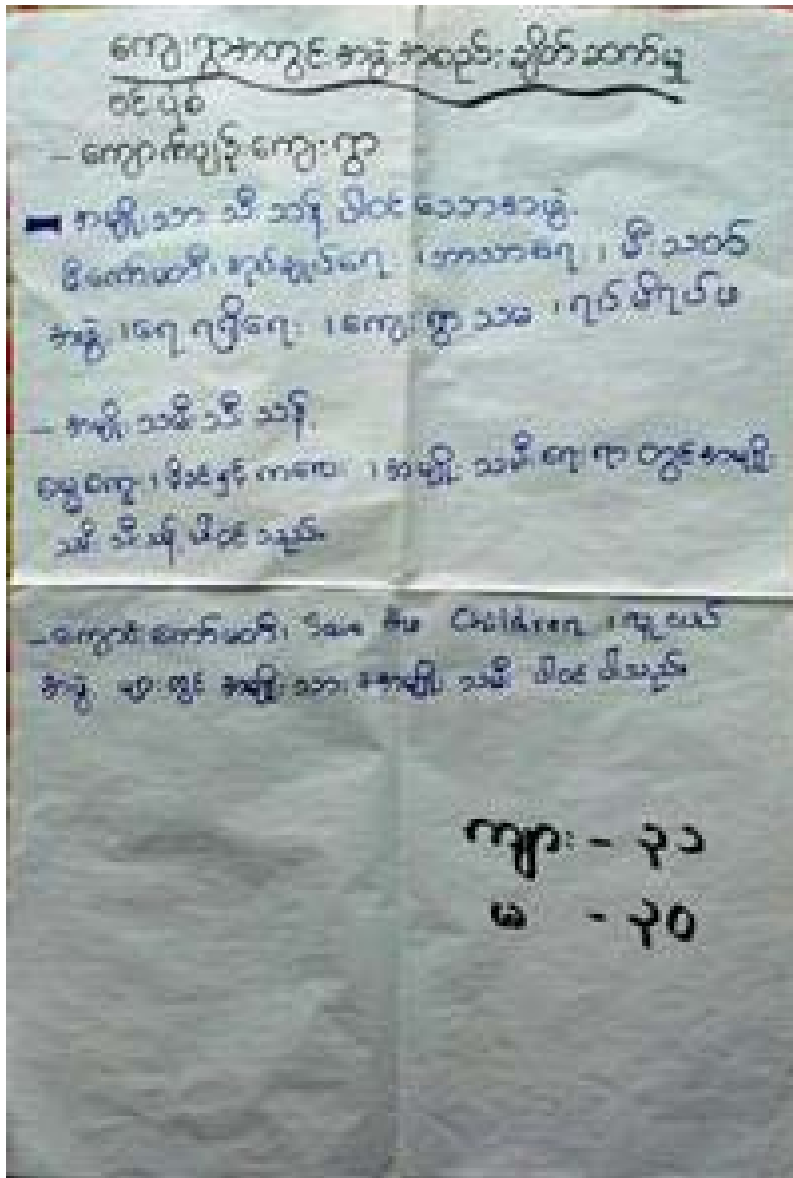 ကျေးရွာအတွင်း အဖွဲ့အစည်းချိတ်ဆက်မှု
ဝင်ပုံစံ
- ကျောက်ပျဉ်းကျေးရွာ
- အမျိုးသား သီးသန့် ပါဝင်သောအဖွဲ့
အုပ်ချုပ်ရေး ၊ ဘာသာရေး ၊ မီးသတ်
အဖွဲ့ ၊ ရေရရှိရေး ၊ ကျေးရွာ သမ ၊ ရပ်မိရပ်ဖ
- အမျိုးသမီး သီးသန့်
မွေ့ကျေး ၊ မိခင်နှင့်ကလေး ၊ အမျိုးသမီးရေးရာ တွင် အမျိုး
သမီး သီးသန့် ပါဝင်သည်။
- ကျောင်းကော်မတီ၊ Save the Children ၊ လူငယ်
အဖွဲ့ များတွင် အမျိုးသား အမျိုးသမီး ပါဝင်ပါသည်။
ကျား - ၃၁
မ - ၃၀